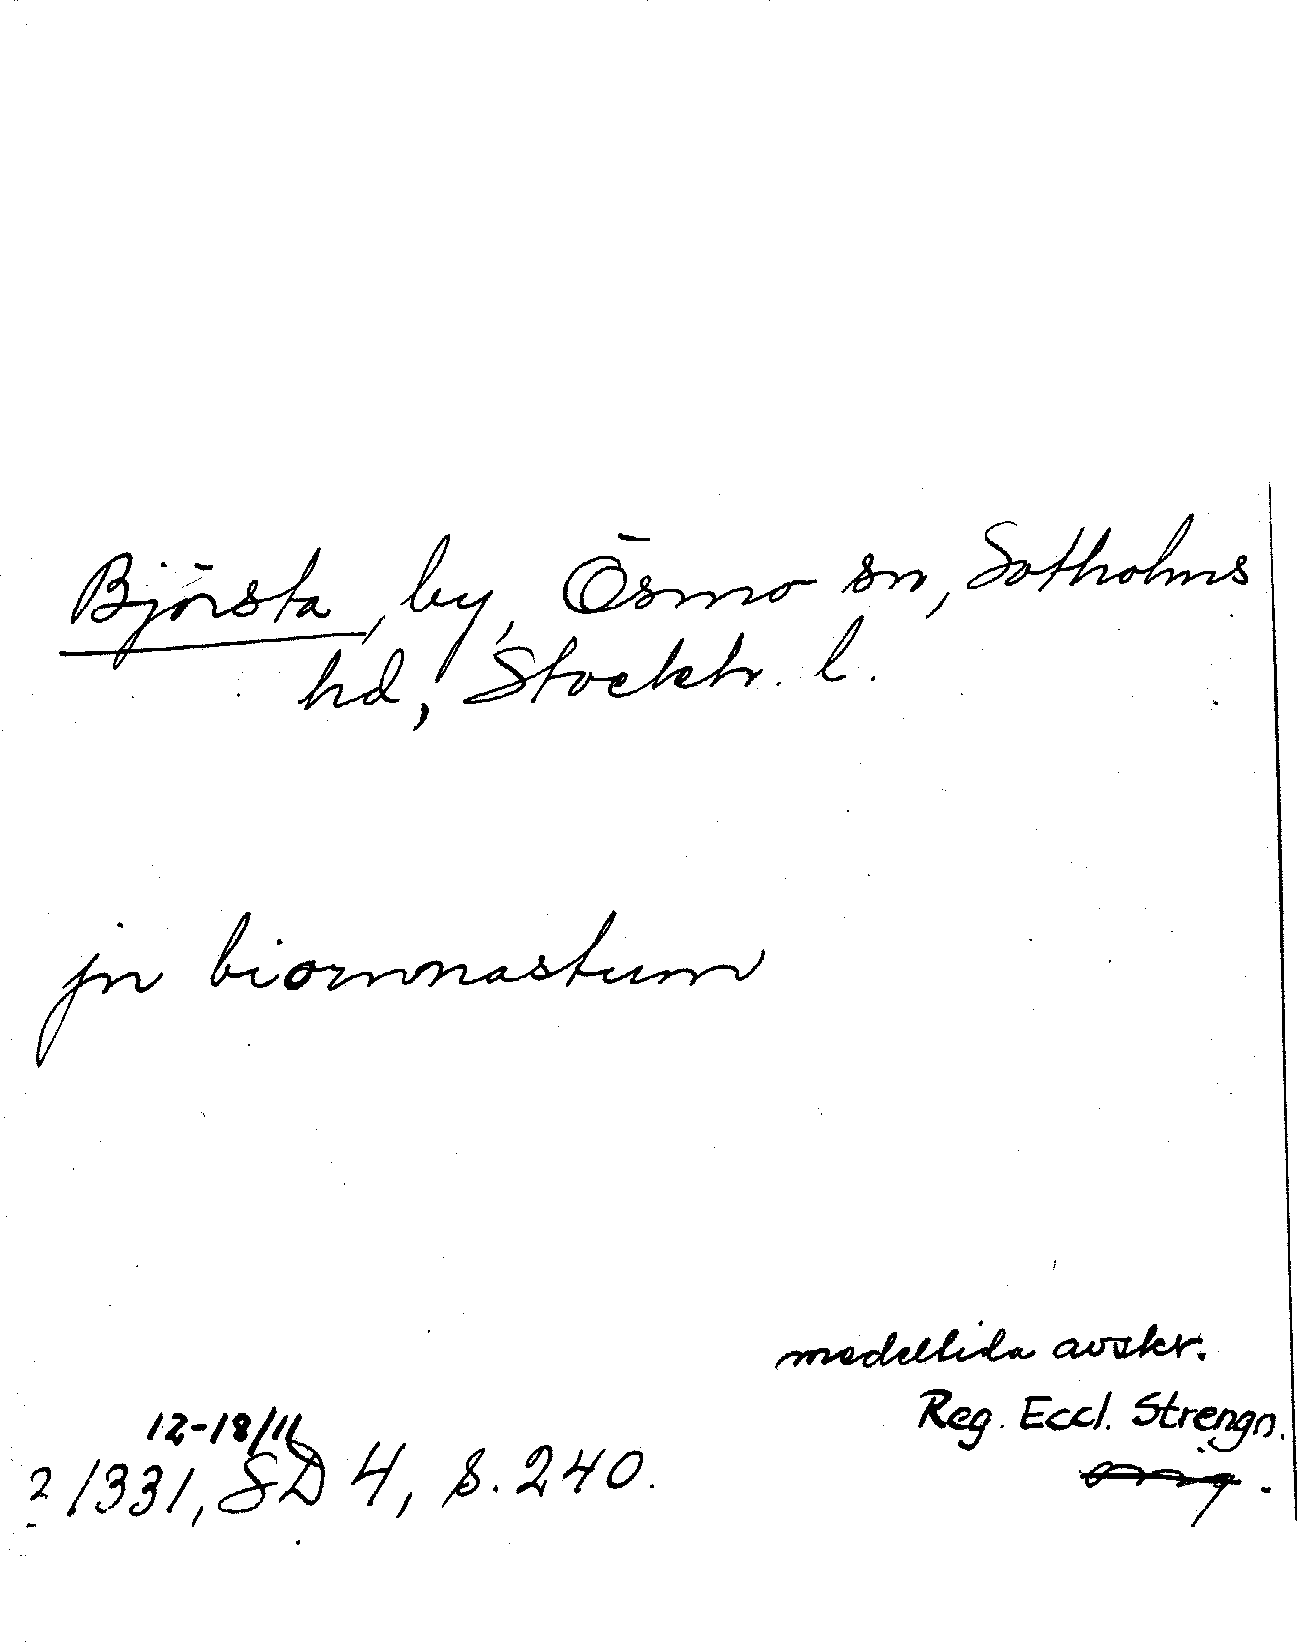 Björsta, by, Ösmo sn, Sotholms
hd, Stockh. l.
jn biornnastum
medeltida avskr.
Reg. Eccl. Strengn.
12-18/11
? 1331, SD 4, s. 240.